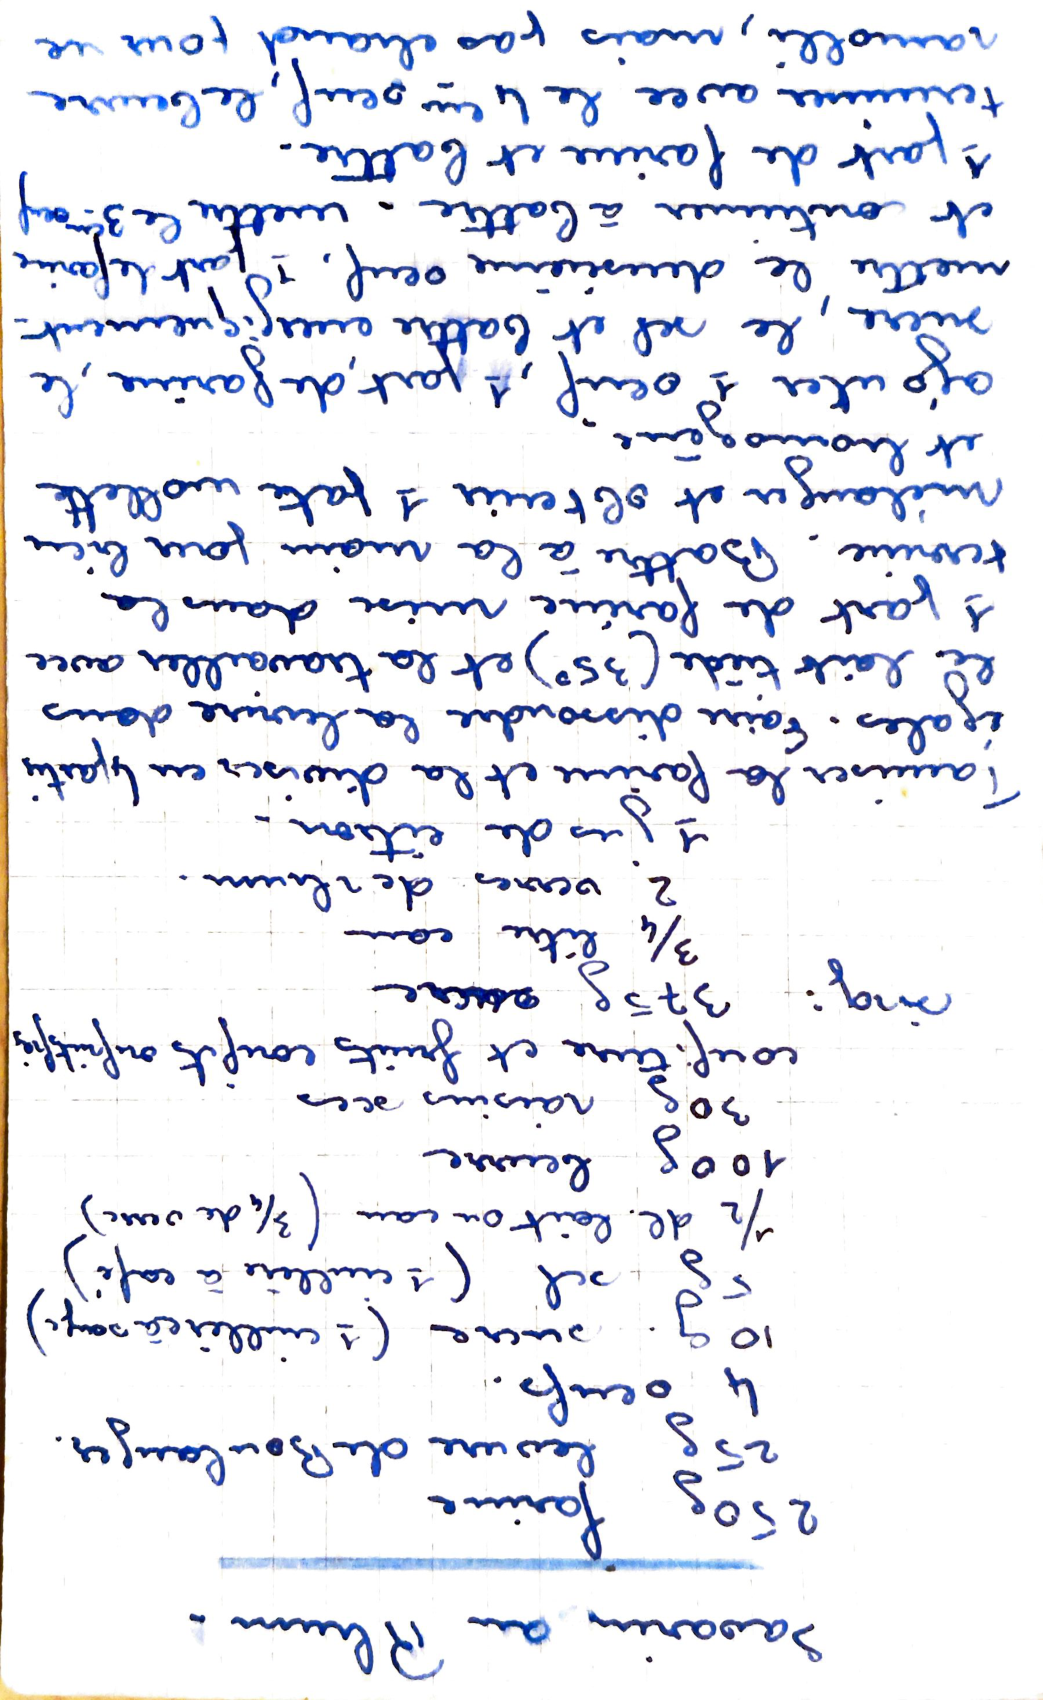 Savarin au Rhum.
250g farine
25g levure de Boulanger.
4 oeufs.
10 g. sucre (1 cuillère à soupe)
5 g sel (1 cuillère à café)
1/2 dl. lait ou eau (3/4 de verre)
100g beurre
30g raisins secs
confiture et fruits confits
sirop: 375g sucre
3/4 litre eau
2 verres de rhum.
1 jus de citron.
Tamiser la farine et la diviser en 4 partis
égales. Faire dissoudre la levure dans
le lait tiède (35°) et la travailler avec
1 part de farine mise dans la
terrine. Battre à la main pour bien
mélanger et obtenir 1 pate mollette
et homogène.
ajouter 1 oeuf, 1 part de farine, le
sucre, le sel et battre energiquement.
mettre le deuxième oeuf, 1 part de farine
et continuer à battre. mettre le 3ème oeuf
1 part de farine et battre.
terminer avec le 4ème oeuf, le beurre
ramolli, mais pas chaud pour ne